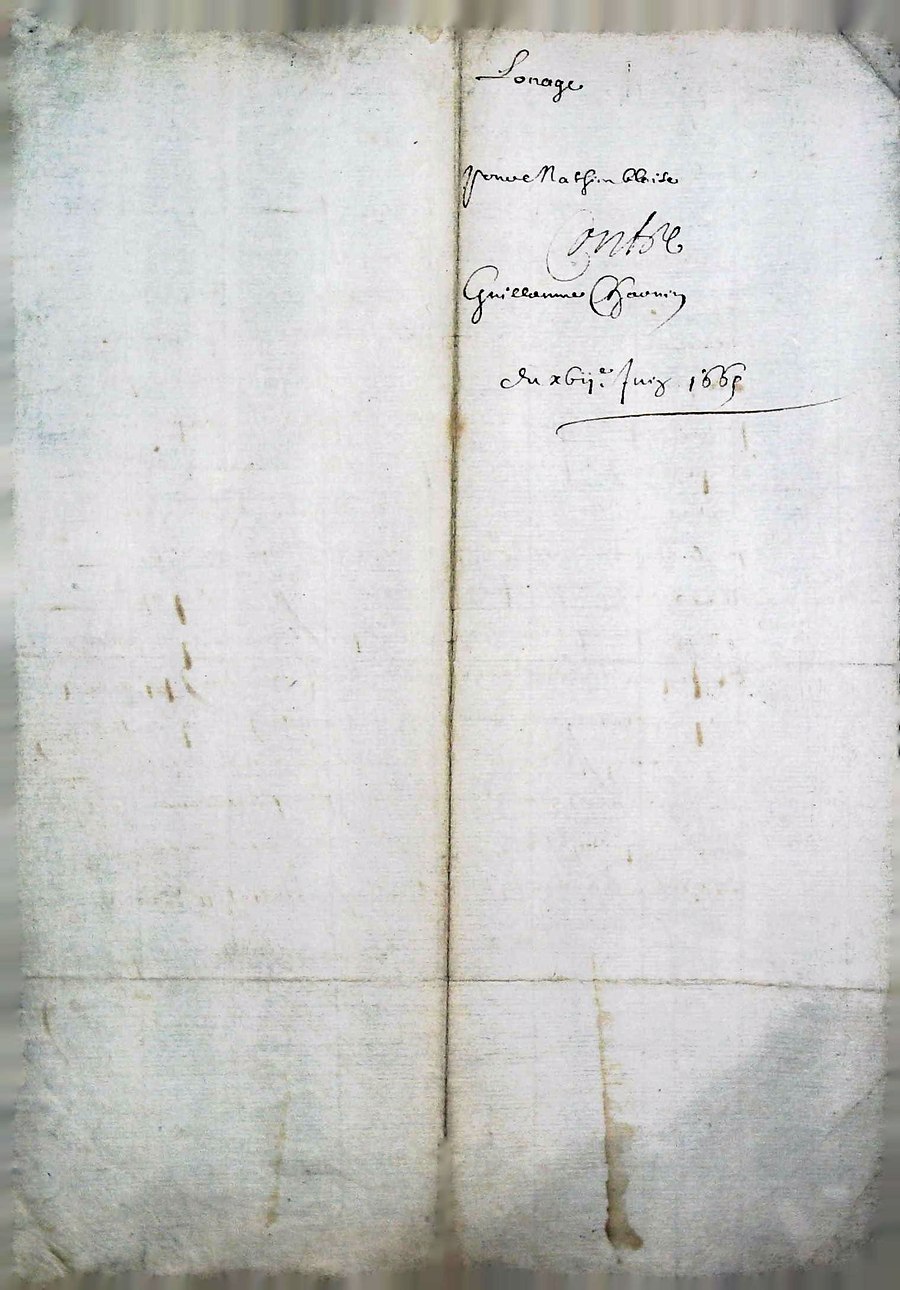 Louage
pour Mathin Blaise
Contre
Guillaume Chavvin
du xvije Juin 1665